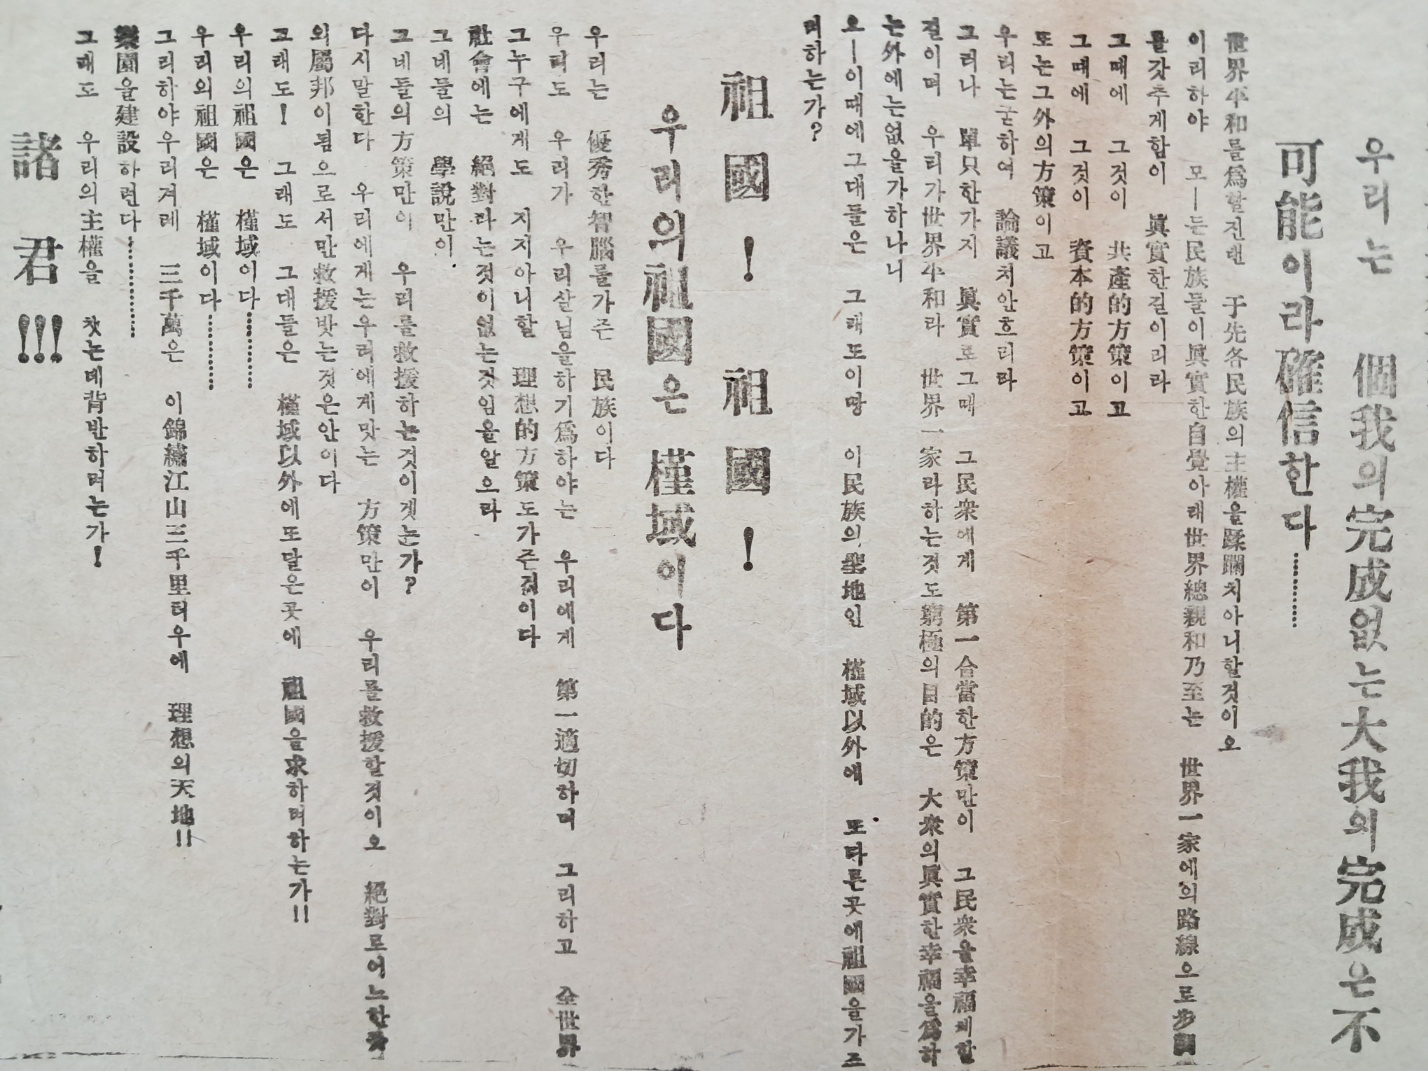 우리는 個我의完成없는大我의完成은不
可能이라確信한다………
世界平和를爲할진댄 于先各民族의主權을蹂躪치아니할것이오
이리하야 모―든民族들이眞實한自覺아래世界總親和乃至는 世界一家에의路線으로步調
를갖추게함이 眞實한길이리라
그때에 그것이 共產的方策이고
그때에 그것이 資本的方策이고
또는그外의方策이고
우리는굳하여 論議치안흐리라
그러나 單只한가지 眞實로그때 그民衆에게 第一合當한方策만이 그民衆을幸福케할
길이며 우리가世界平和라 世界一家라하는것도窮極의目的은 大衆의眞實한幸福을爲하
는外에는없을가하나니
오―이때에그대들은 그래도이땅 이民族의聖地인 槿域以外에 또다른곳에祖國을가즈
려하는가?
祖國! 祖國!
우리의祖國은 槿域이다
우리는 優秀한智腦를가즌 民族이다
우리도 우리가 우리살님을하기爲하야는 우리에게 第一適切하며 그리하고 全世界
그누구에게도 지지아니할 理想的方策도가즌것이다
社會에는 絕對라는것이없는것임을알으라
그네들의 學說만이.
그네들의方策만이 우리를救援하는것이겟는가?
다시말한다 우리에게는우리에게맛는 方策만이 우리를救援할것이오 絕對로어느한
外屬邦이됨으로서만救援밧는것은안이다
그래도! 그래도 그대들은 槿域以外에또달은곳에 祖國을求하려하는가!!
우리의祖國은 槿域이다………
우리의祖國은 槿域이다………
그리하야우리겨레 三千萬은 이錦繡江山三千里터우에 理想의天地!!
樂園을建設하련다…………
그래도 우리의主權을 찻는데背반하려는가!
諸君!!!